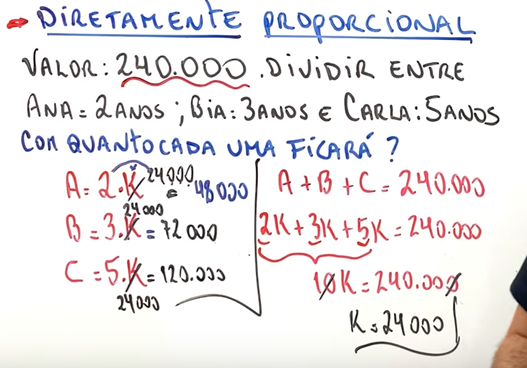 DIRETAMENTE PROPORCIONAL
VALOR: 240.000. DIVIDIR ENTRE
ANA = 2 ANOS ; BIA: 3 ANOS E CARLA: 5 ANOS
COM QUANTO CADA UMA FICARÁ ?
A = 2.K 24000 = 48000
24000
B = 3.K = 72000
C = 5.K = 120.000
24000
A + B + C = 240.000
2K + 3K + 5K = 240.000
10K = 240.000
K = 24000